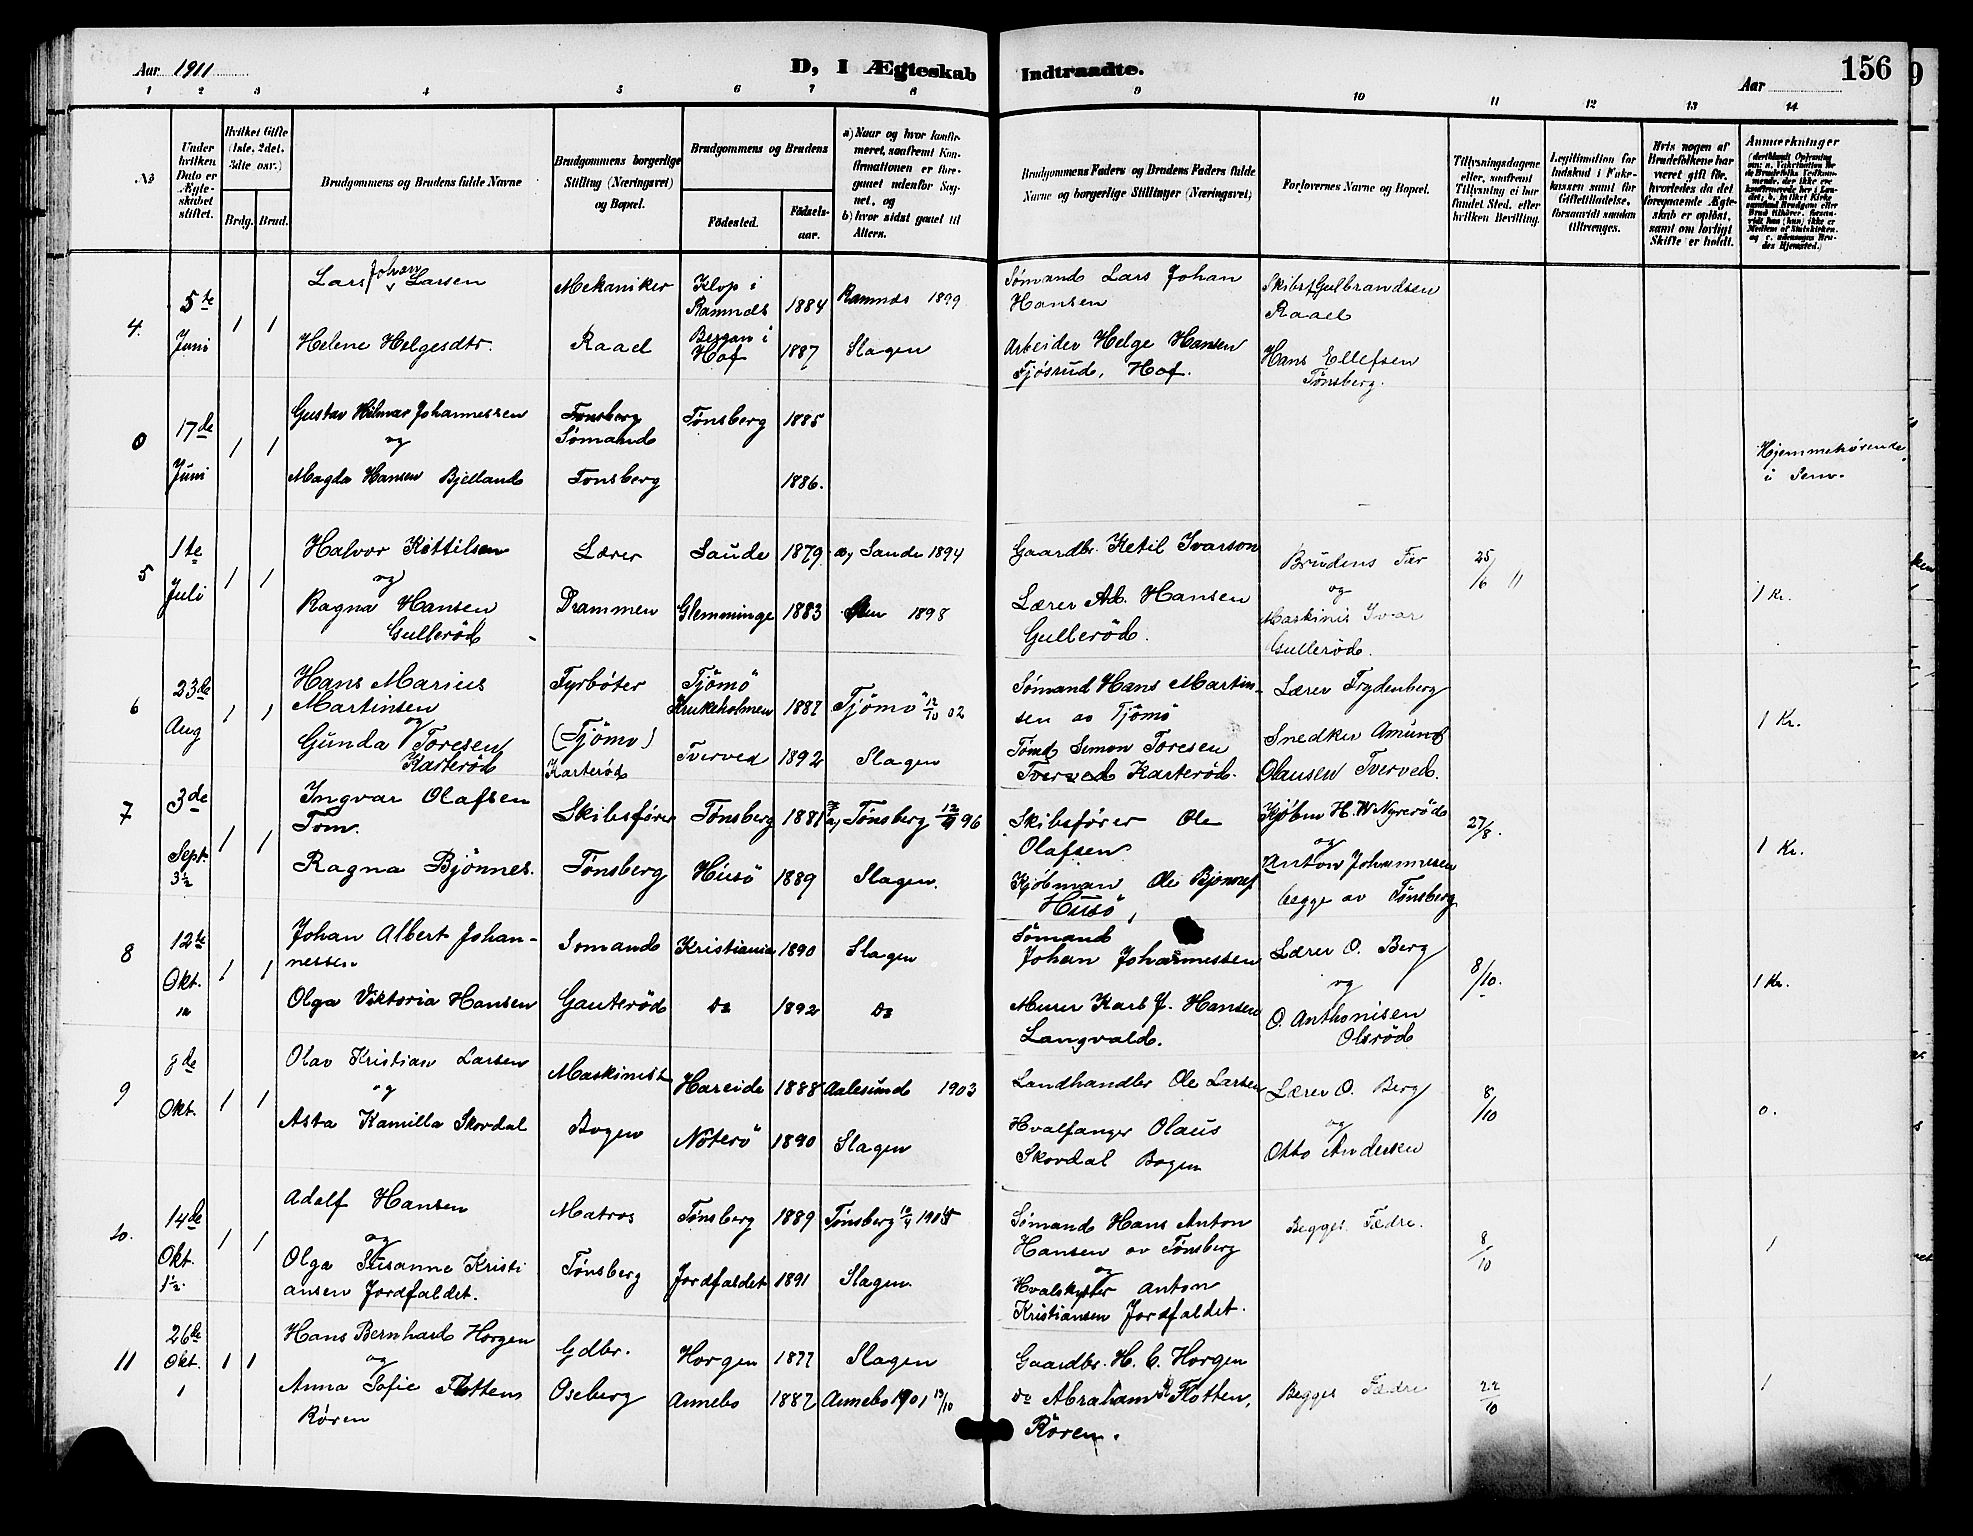 Aar 1911
D, I Ægteskab Indtraadte.
Aar
156
1 2 3 4 5 6 7 8 9 10 11 12 13 14
No
Under hvilken Dato er Ægteskabet stiftet.
Hvilket Gifte (1ste, 2det, 3die osv.)
Brdg. Brud.
Brudgommens og Brudens fulde Navne
Brudgommens borgerlige Stilling (Næringsvei) og Bopæl.
Brudgommens og Brudens
Fødested.
Fødselsaar.
a) Naar og hvor konfirmeret, saafremt Konfirmationen er foregaaet udenfor Sognet, og
b) hvor sidst gaaet til Alters.
Brudgommens Faders og Brudens Faders fulde Navne og borgerlige Stillinger (Næringsvei)
Forlovernes Navne og Bopæl.
Tillysningsdagene eller, saafremt Tillysning ei har fundet Sted, efter hvilken Bevilling.
Hvis nogen af Brudefolkene har været gift før, hvorledes da det foregaaende Ægteskab er opløst, samt om lovligt Skifte er holdt.
Anmerkninger
4. 5te Juni 1 1
Lars Johan Larsen Mekaniker Klop i Ramnes 1884 Ramnes 1899 Sømand Lars Johan Hansen Skibsf. Gulbrandsen Raael
Helene Helgesdtr. Raael Bergan i Hof 1887 Slagen Arbeider Helge Hansen Fjøsrud, Hof. Hans Ellefsen Tønsberg.
0 17de Juni 1 1
Gustav Hilmar Johannessen Tønsberg Sømand Tønsberg 1885
og
Magda Hansen Bjelland Tønsberg 1886. Hjemmehørende i Sem.
5 1te Juli 1 1
Halvor Kittilsen Lærer Saude 1879 a) Saude 1894 Gaardbr. Ketil Ivarson Brudens Far 25/6 11
og
Ragna Hansen Gullerød Drammen Glemminge 1883 1898 Lærer Ab. Hansen Gullerød. og Maskinis Ivar Gullerød. 1 Kr.
6 23de Aug 1 1
Hans Marius Martinsen Fyrbøter Tjømø Krukeholmen 1887 Tjømø 12/10 02 Sømand Hans Martinsen av Tjømø Lærer Frydenberg
og
Gunda Toresen Karterød (Tjømø) Karterød Tverved 1892 Slagen Tømd Simon Toresen Tverved Karterød. Snedker Amund Olausen Tverved. 1 Kr.
7 3de Sept. 3½ 1 1
Ingvar Olafsen Tom. Skibsfører Tønsberg 1881 a) Tønsberg 96 Skibsfører Ole Olafsen Kjøbm H. W Nyrerød 27/8.
og
Ragna Bjønnes. Tønsberg Husø 1889 Slagen. Kjøbman Ole Bjønnes Husø, Anton Johannesen begge av Tønsberg 1 Kr.
8 12te Okt. 1 1
Johan Albert Johannessen Sømand Kristiania 1890 Slagen Sømand Johan Johannessen Lærer O. Berg 8/10.
og
Olga Viktoria Hansen Gauterød Do 1892 Do Murer Karl J. Hansen Langvald. O. Anthonisen Olsrød 1 Kr.
9 8de Okt. 1 1
Olav Kristian Larsen Maskinist Hareide 1888 Aalesund 1903 Landhandler Ole Larsen Lærer O. Berg 8/10
og
Asta Kamilla Skordal Bogen Nøterø 1890 Slagen Hvalfanger Olaus Skordal Bogen og Otto Andersen 0.
10. 14de Okt. 1½. 1 1
Adolf Hansen Matros Tønsberg 1889 Tønsberg 1905 Sømand Hans Anton Hansen av Tønsberg Begges Fædre. 8/10
og
Olga Susanne Kristiansen Jordfaldet. Tønsberg Jordfaldet 1891 Slagen. og Hvalskytter Anton Kristiansen Jordfaldet. 1
11 26de Okt. 1 1 1
Hans Bernhard Horgen Gdbr. Horgen 1877 Slagen Gaardbr. H. C. Horgen
og
Anna Sofie Flottens Røren Oseberg Annebo 1887 Annebo 1901 13/10 do Abraham K Flotten, Røren. Begges Fædre 22/10 1